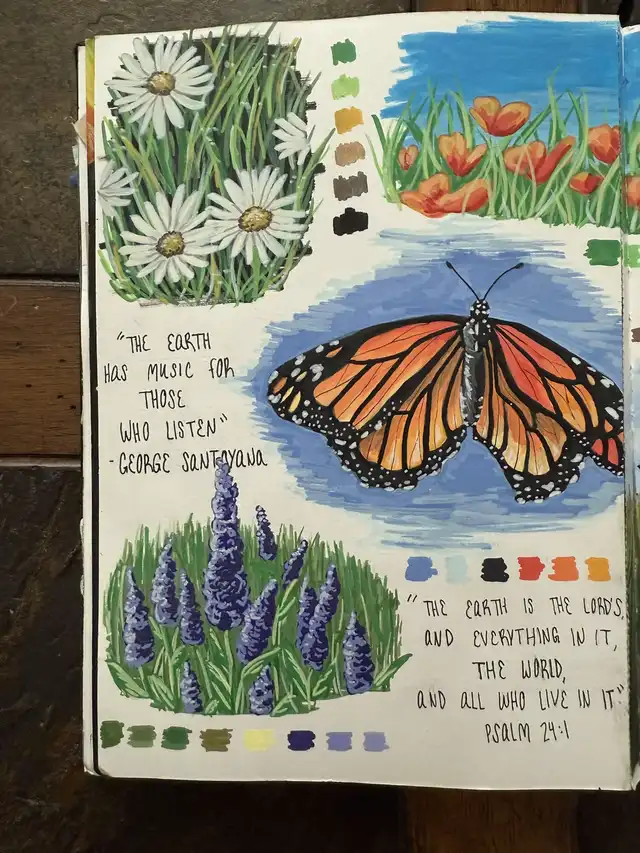 "THE EARTH
HAS MUSIC FOR
THOSE
WHO LISTEN"
-GEORGE SANTAYANA
"THE EARTH IS THE LORD'S,
AND EVERYTHING IN IT,
THE WORLD,
AND ALL WHO LIVE IN IT"
PSALM 24:1